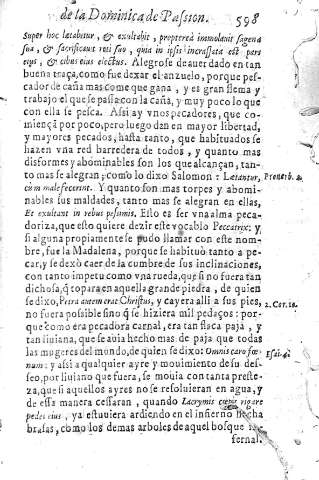 de la Dominica de Passion. 598
Super hoc lætabitur, & exultabit, propterea immolauit sagena
sua, & sacrificauit reti suo, quia in ipsis incrassata est pars
eius, & cibus eius electus. Alegrose de auer dado en tan
buena traça, como fue dexar el anzuelo, porque pes-
cador de caña mas come que gana, y es gran flema y
trabajo el que se passa con la caña, y muy poco lo que
con ella se pesca. Assi ay vnos pecadores, que co-
miençã por poco, pero luego dan en mayor libertad,
y mayores pecados, hasta tanto, que habituados se
hazen vna red barredera de todos, y quanto mas
disformes y abominables son los que alcançan, tan-
to mas se alegran; como lo dixo Salomon: Lætantur, Prouerb. 2.
cùm male fecerint. Y quanto son mas torpes y abomi-
nables sus maldades, tanto mas se alegran en ellas,
Et exultant in rebus pessimis. Esto es ser vna alma peca-
doriza, que esto quiere dezir este vocablo Peccatrix; y
si alguna propiamente se pudo llamar con este nom-
bre, fue la Madalena, porque se habituò tanto a pe-
car, y se dexò caer de la cumbre de sus inclinaciones,
con tanto impetu como vna rueda, que si no fuera tan
dichosa, q̃ topara en aquella grande piedra, de quien
se dixo, Petra autem erat Christus, y cayera alli a sus pies, 1. Cor. 10.
no fuera possible sino q̃ se hiziera mil pedaços: por-
que como era pecadora carnal, era tan flaca paja, y
tan liuiana, que se auia hecho mas de paja que todas
las mugeres del mundo, de quien se dixo: Omnis caro fœ- Esai. 4.
num: y assi a qualquier ayre y mouimiento de su des-
seo, por liuiano que fuera, se mouia con tanta preste-
za, que si aquellos ayres no se resoluieran en agua, y
de essa manera cessaran, quando Lacrymis cœpit rigare
pedes eius, ya estuuiera ardiendo en el infierno hecha
brasas, como los demas arboles de aquel bosque in-
fernal.